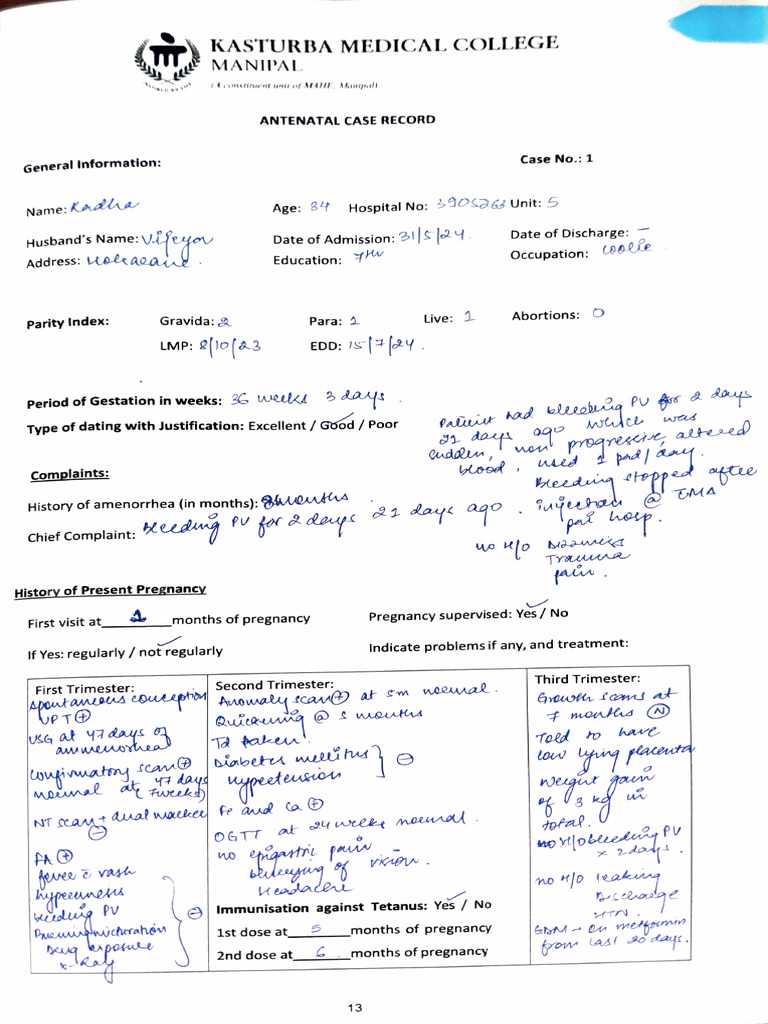 KASTURBA MEDICAL COLLEGE
MANIPAL
(A constituent unit of MAHE, Manipal)
ANTENATAL CASE RECORD
General Information:
Case No.: 1
Name: Radha
Age: 34 Hospital No: 3905263 Unit: 5
Husband's Name:
Date of Admission: 31/5/24
Date of Discharge: –
Address:
Education: 7th
Occupation: coolie
Parity Index: Gravida: 2 Para: 1 Live: 1 Abortions: 0
LMP: 8/10/23 EDD: 15/7/24.
Period of Gestation in weeks: 36 weeks 3 days.
Type of dating with Justification: Excellent / Good / Poor
Patient had bleeding PV for 2 days
21 days ago which was
sudden, non progressive, altered
blood, used 1 pad/day.
Bleeding stopped after
injection @ TMA
pai hosp.
no H/O Dizziness
Trauma
pain.
Complaints:
History of amenorrhea (in months): 8 months
Chief Complaint: Bleeding PV for 2 days 21 days ago.
History of Present Pregnancy
First visit at months of pregnancy
Pregnancy supervised: Yes / No
If Yes: regularly / not regularly
Indicate problems if any, and treatment:
First Trimester:
Spontaneous conception
UPT +
USG at 47 days of
ammenorhea
Confirmatory scan +
normal at 47 days
(7 weeks)
NT scan + dual marker
–
FA +
fever c̄ rash
hyperemesis
bleeding PV
Burning micturation
Drug exposure
X-Ray
–
Second Trimester:
Anomaly scan + at 5m normal.
Quickening @ 5 months
Td taken.
Diabetes mellitus
Hypertension
–
Fe and Ca +
OGTT at 24 weeks normal.
no epigastric pain
blurring of vision.
Headache
Immunisation against Tetanus: Yes / No
1st dose at 5 months of pregnancy
2nd dose at 6 months of pregnancy
Third Trimester:
Growth scans at
7 months N
Told to have
low lying placenta
Weight gain
of 3 kg in
total.
H/O bleeding PV
x 2 days.
no H/O leaking
Discharge
HTN.
GDM – on metformin
from last 20 days.
13